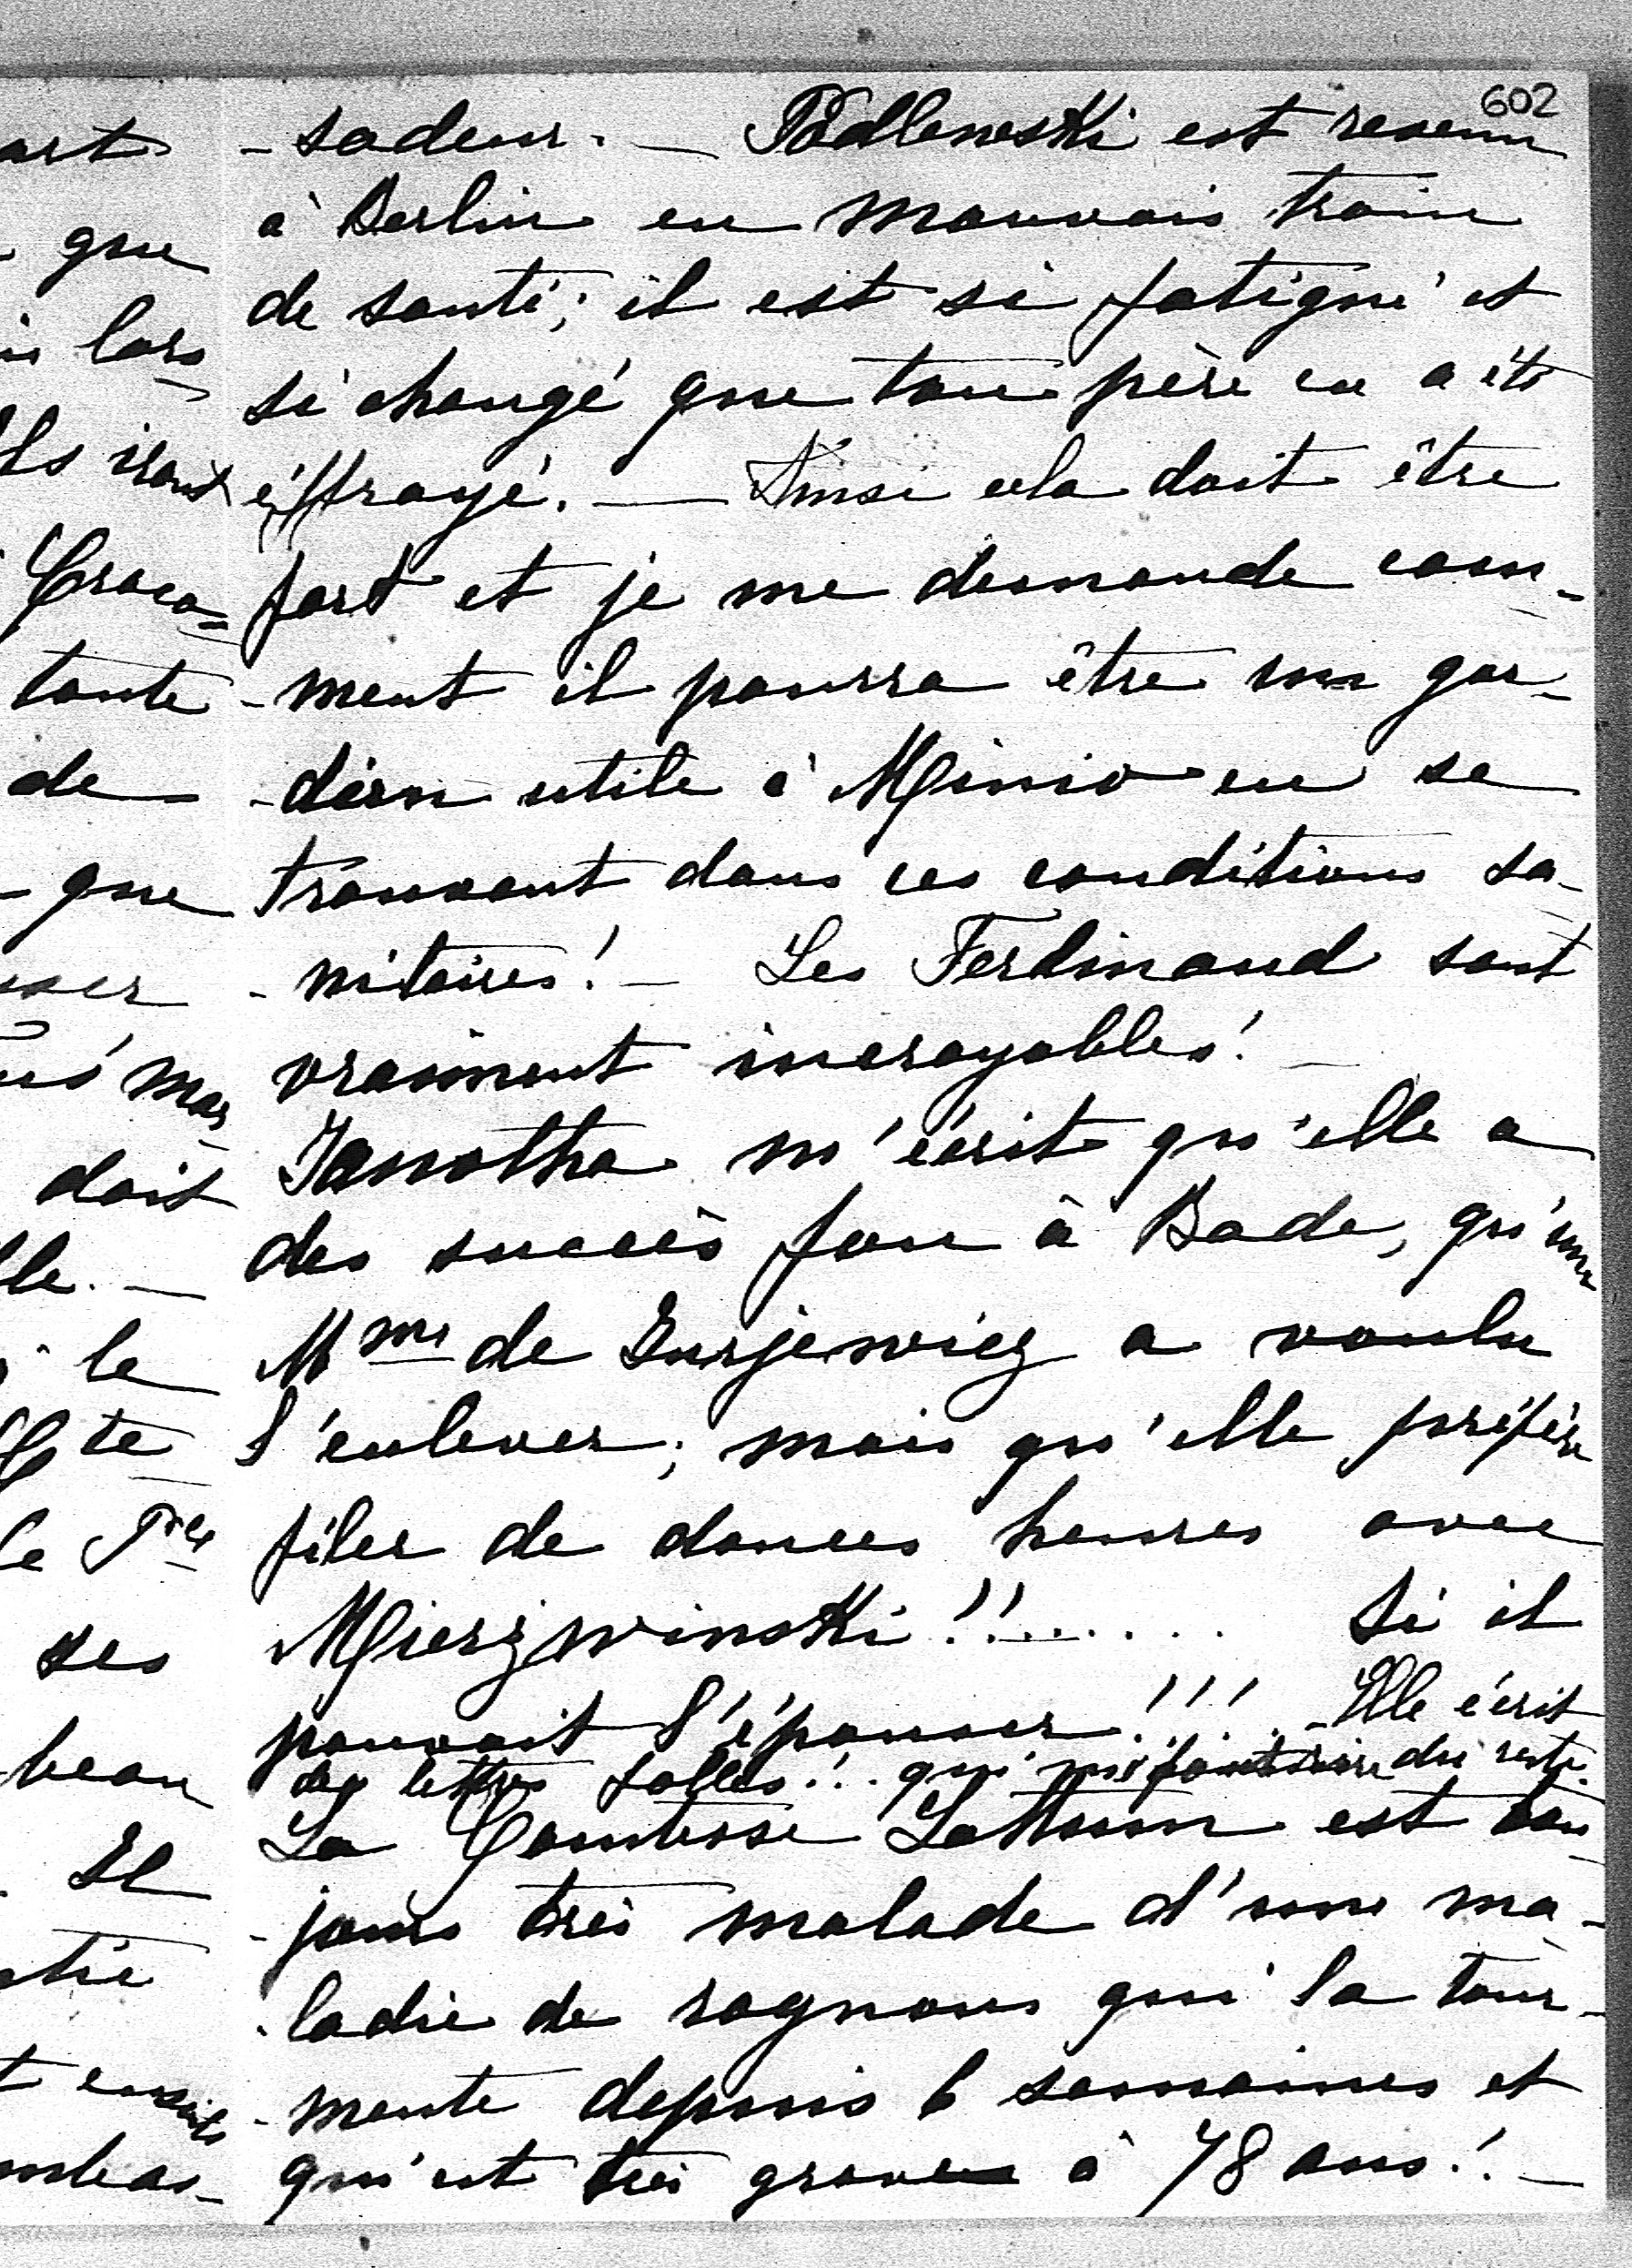 602
-sadeur. — Podlewski est revenu
à Berlin en mauvais train
de santé; il est si fatigué et
si changé que ton père en a été
éffrayé. — Ainsi cela doit être
fort et je me demande com-
-ment il pourra être un gar-
-dien utile à Minio en se
trouvant dans ces conditions sa-
-nitaires! — Les Ferdinand sont
vraiment incroyables! —
Janotha m'écrit qu'elle a
des succès fou à Bade, qu'une
Mme de Gurjewicz a voulu
l'enlever; mais qu'elle préfère
filer de douces heures avec
Mierzwinski!!....... Si il
pouvait l'épouser!!!.. - Elle écrit
des lettres folles!.. qui me font rire du reste.
La Comtesse est tou-
-jours très malade d'une ma-
-ladie de rognons qui la tour-
-mente depuis 6 semaines et
qui est très grave à 78 ans!. —
art
que
lors
Ils iront
Craco=
tante
de
- que
mar
doit
lle. —
le
Cte
le Pce
ses
beau
. Il
ensuite
mbas-